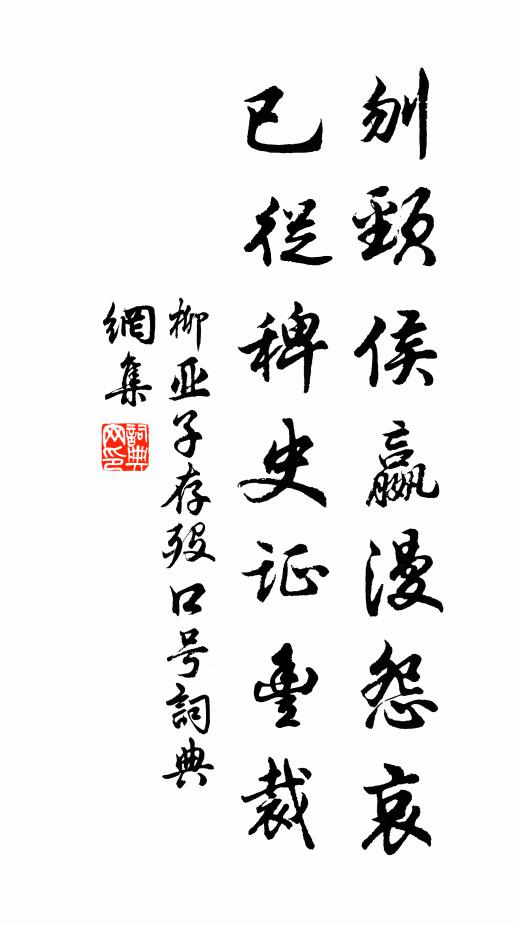 刎頸侯嬴漫怨哀
已從稗史证豐裁
柳亚子存殁口号詞典
網集
詞典
网印